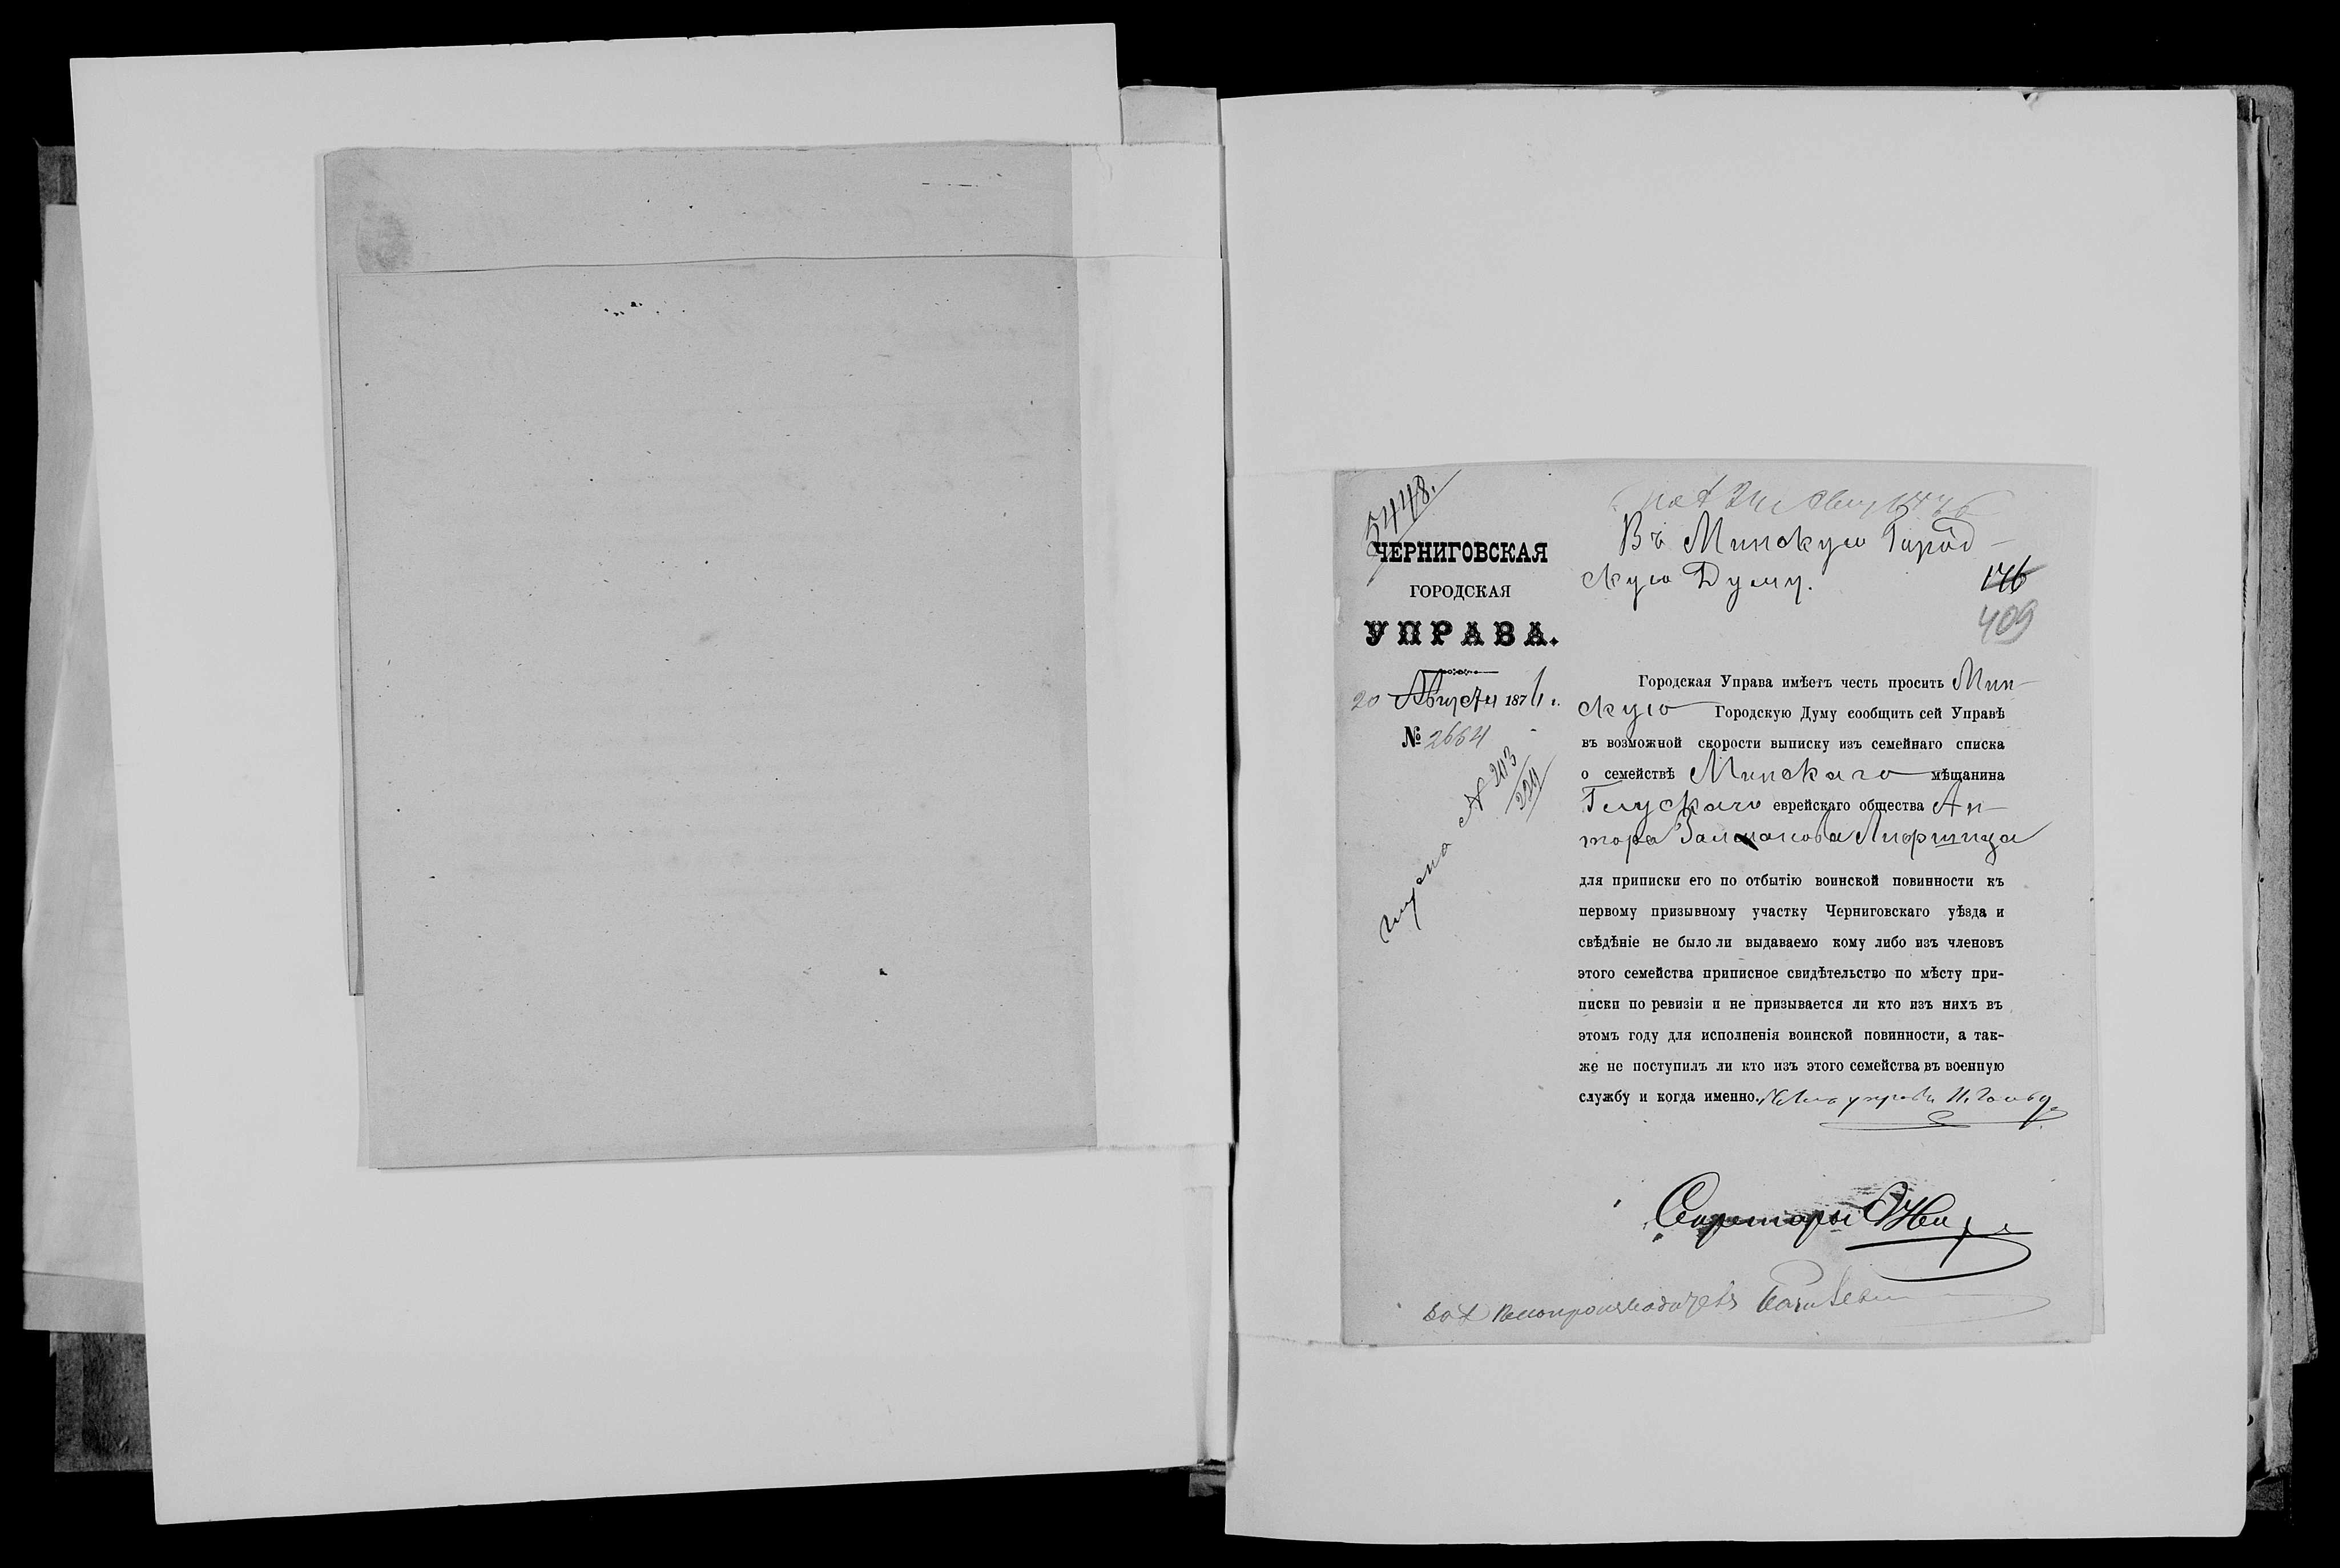 5448.
ЧЕРНИГОВСКАЯ
ГОРОДСКАЯ
УПРАВА.
20 Августа 1876 г.
№ 2664
№ 203
Въ Минскую Город-
скую Думу.
176
409
Городская Управа имѣетъ честь просить Мин-
скую Городскую Думу сообщить сей Управѣ
въ возможной скорости выписку изъ семейнаго списка
о семействѣ Минскаго мѣщанина
Глускаго еврейскаго общества Ан-
тора Залманова Лифшица
для приписки его по отбытію воинской повинности къ
первому призывному участку Черниговскаго уѣзда и
свѣдѣніе не было ли выдаваемо кому либо изъ членовъ
этого семейства приписное свидѣтельство по мѣсту при-
писки по ревизіи и не призывается ли кто изъ нихъ въ
этомъ году для исполненія воинской повинности, а так-
же не поступилъ ли кто изъ этого семейства въ военную
службу и когда именно. Членъ управы
Секретарь